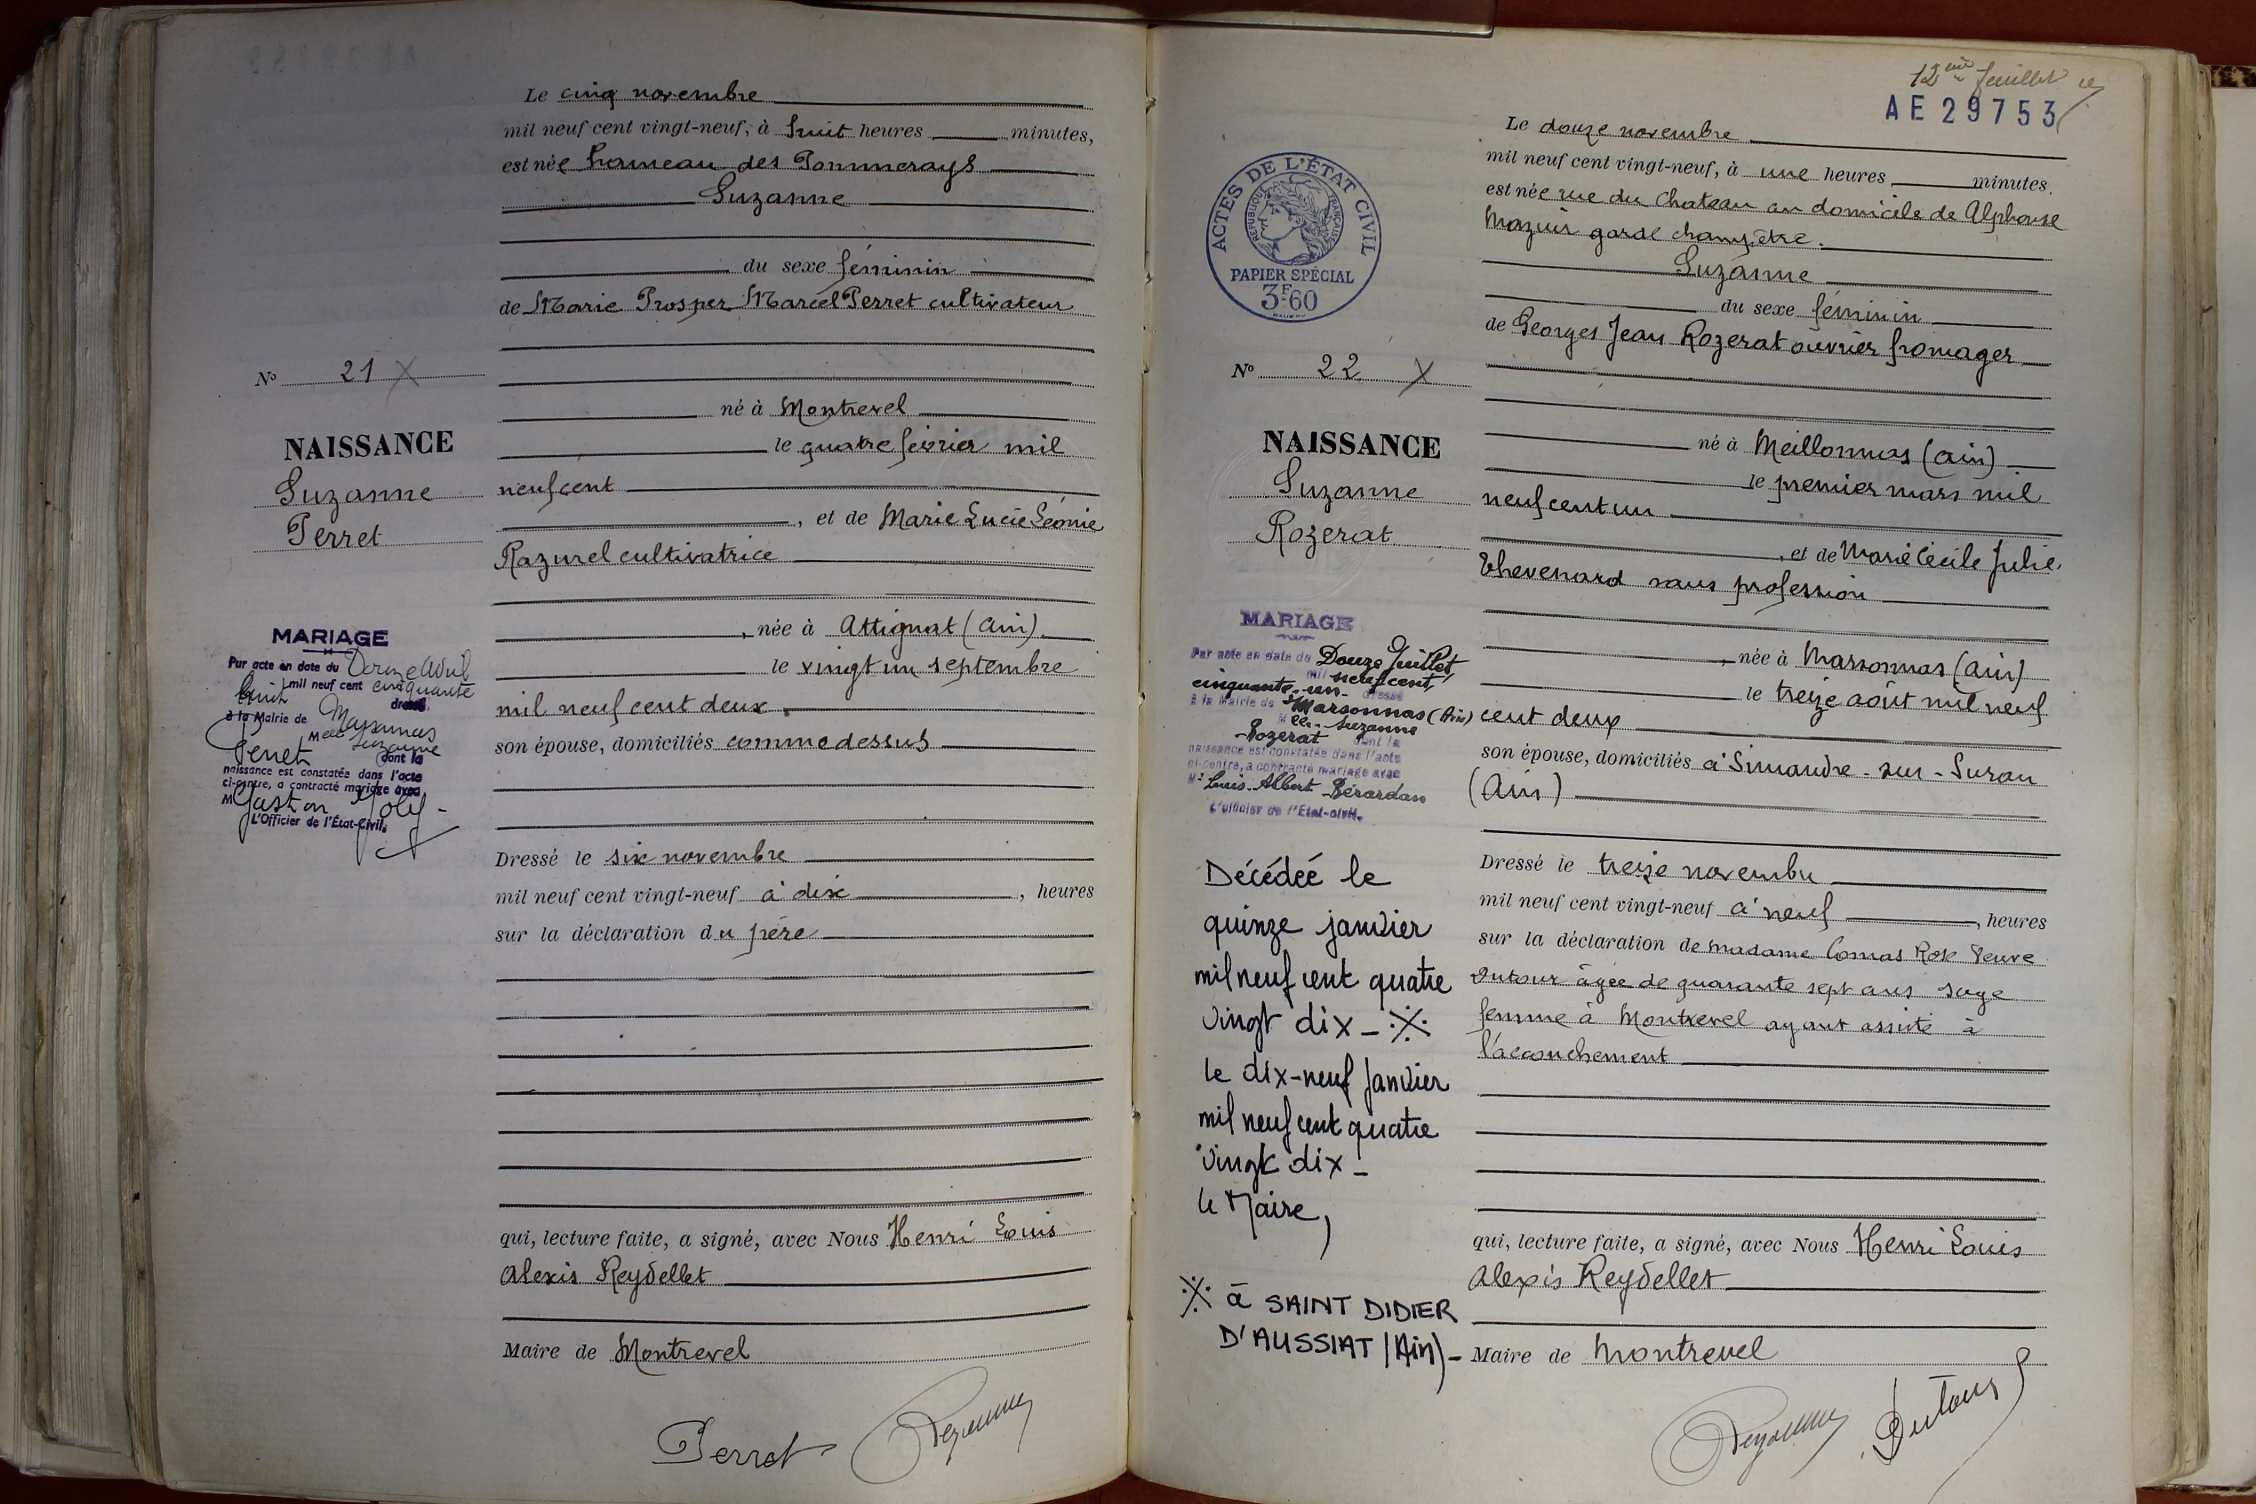 Le cinq novembre
mil neuf cent vingt-neuf, à huit heures minutes,
est née hameau des Pommerays
Suzanne
du sexe féminin
de Marie Prosper Marcel Perret cultivateur
né à Montrevel
le quatre février mil
neuf cent
, et de Marie Lucie Léonie
Razurel cultivatrice
, née à Attignat (Ain)
le vingt un septembre
mil neuf cent deux
son épouse, domiciliés comme dessus
Dressé le six novembre
mil neuf cent vingt-neuf à dix , heures
sur la déclaration du père
qui, lecture faite, a signé, avec Nous Henri Louis
Alexis Reydellet
Maire de Montrevel
Perret
No 21 X
NAISSANCE
Suzanne
Perret
MARIAGE
Par acte en date du Douze Avril
mil neuf cent cinquante
huit dressé
à la Mairie de Marsonnas
Melle Suzanne
Perret dont la
naissance est constatée dans l'acte
ci-contre, a contracté mariage avec
M Gaston Joly
L'Officier de l'État-Civil.
12eme feuillet
AE 29753
ACTES DE L'ÉTAT CIVIL
RÉPUBLIQUE FRANÇAISE
PAPIER SPÉCIAL
3F.60
Le douze novembre
mil neuf cent vingt-neuf, à une heures minutes.
est née rue du Chateau au domicile de Alphonse
Mazuir garde champêtre.
Suzanne
du sexe féminin
de Georges Jean Rozerat ouvrier fromager
né à Meillonnas (Ain)
le premier mars mil
neuf cent un
, et de Marie Cécile Julie
Thevenard sans profession
, née à Marsonnas (Ain)
le treize août mil neuf
cent deux
son épouse, domiciliés à Simandre-sur-Suran
(Ain)
Dressé le treize novembre
mil neuf cent vingt-neuf à neuf , heures
sur la déclaration de madame Comas Rose Veuve
Dutour âgée de quarante sept ans sage
femme à Montrevel ayant assisté à
l'accouchement
qui, lecture faite, a signé, avec Nous Henri Louis
Alexis Reydellet
Maire de Montrevel
Dutour
No 22 X
NAISSANCE
Suzanne
Rozerat
MARIAGE
Par acte en date du Douze Juillet
mil neuf cent
cinquante-un dressé
à la Mairie de Marsonnas (Ain)
Melle Suzanne
Rozerat dont la
naissance est constatée dans l'acte
ci-contre, a contracté mariage avec
Mr Louis Albert Bérardan
L'Officier de l'État-civil.
Décédée le
quinze janvier
mil neuf cent quatre
vingt dix - ※
le dix-neuf janvier
mil neuf cent quatre
vingt dix -
le Maire,
※ à SAINT DIDIER
D'AUSSIAT (Ain) -